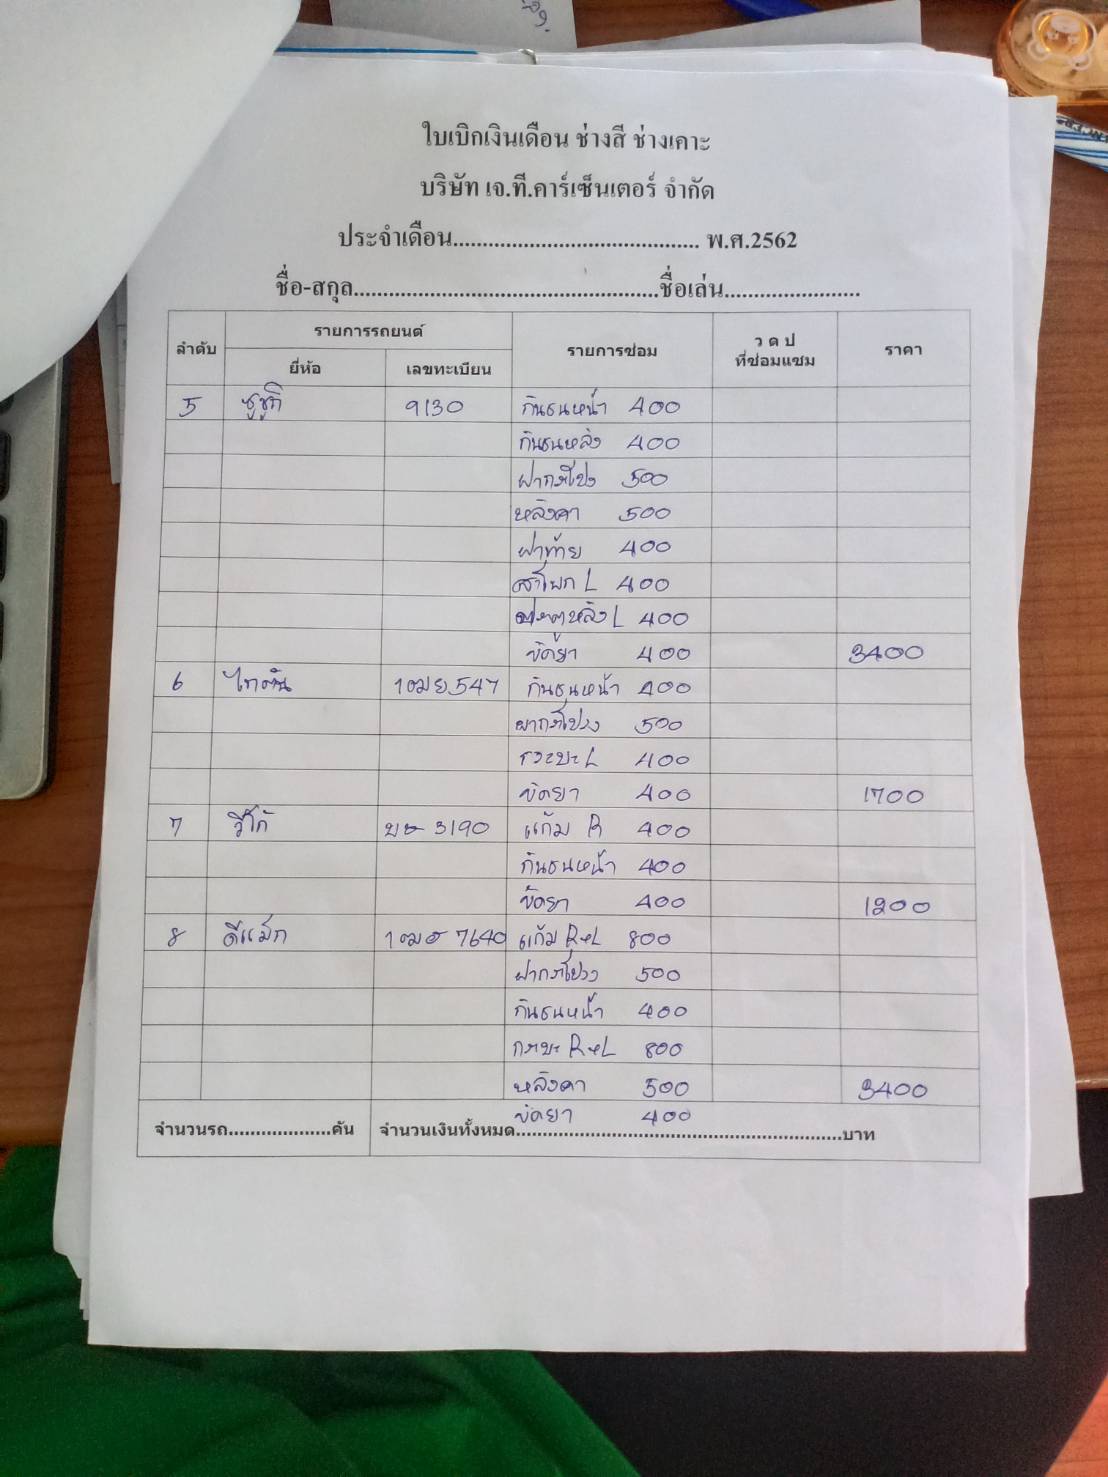 ใบเบิกเงินเดือน ช่างสี ช่างเคาะ
บริษัท เจ.ที.คาร์เซ็นเตอร์ จำกัด
ประจำเดือน.......................................... พ.ศ.2562
ชื่อ-สกุล....................................................ชื่อเล่น.......................
ลำดับ รายการรถยนต์ รายการซ่อม ว ด ป ที่ซ่อมแซม ราคา
ยี่ห้อ เลขทะเบียน
5 ซูซูกิ 9130 กันชนหน้า 400
กันชนหลัง 400
ฝากระโปรง 500
หลังคา 500
ฝาท้าย 400
400
ประตูหลัง L 400
ขัดยา 400 3400
6 ไทตัน 1ฒย547 กันชนหน้า 400
ฝากระโปรง 500
กระบะ L 400
ขัดยา 400 1700
7 วีโก้ 3190 แก้ม R 400
กันชนหน้า 400
ขัดยา 400 1200
8 ดีแม็ก 7640 แก้ม R+L 800
ฝากระโปรง 500
กันชนหน้า 400
กระบะ R+L 800
หลังคา 500 3400
ขัดยา 400
จำนวนรถ...................คัน จำนวนเงินทั้งหมด............................................................บาท